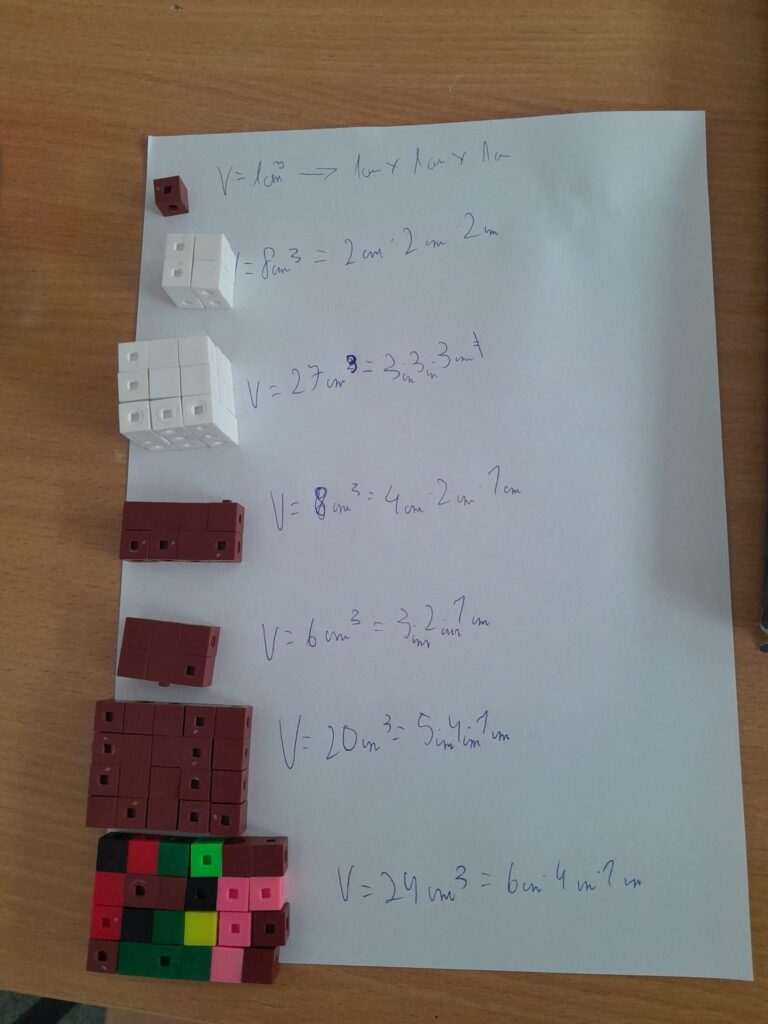 V = 1 cm³ → 1 cm × 1 cm × 1 cm
V = 8 cm³ = 2 cm · 2 cm · 2 cm
V = 27 cm³ = 3 cm · 3 cm · 3 cm
V = 8 cm³ = 4 cm · 2 cm · 1 cm
V = 6 cm³ = 3 cm · 2 cm · 1 cm
V = 20 cm³ = 5 cm · 4 cm · 1 cm
V = 24 cm³ = 6 cm · 4 cm · 1 cm